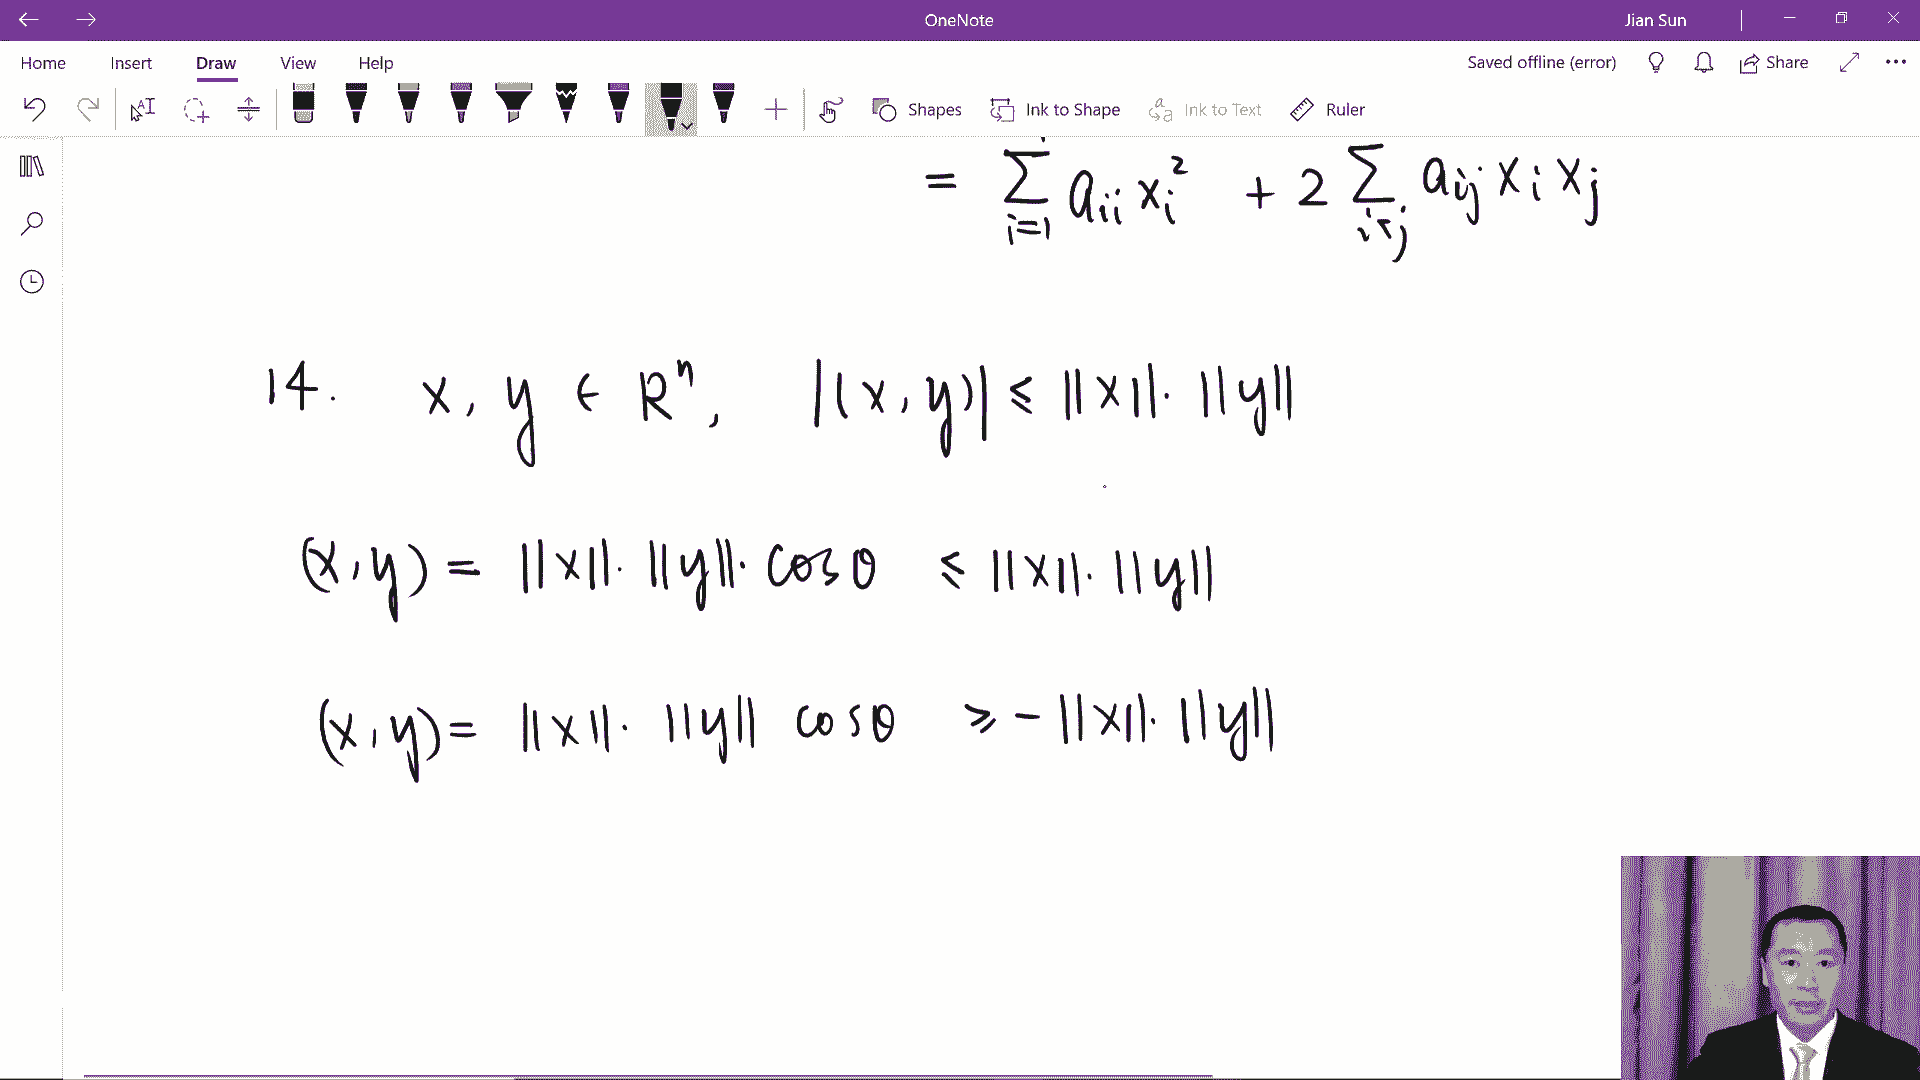 OneNote
Jian Sun
Home Insert Draw View Help
Saved offline (error) Share
Shapes Ink to Shape Ink to Text Ruler
= ∑_{i=1} a_{ii} x_i^2 + 2 ∑_{i<j} a_{ij} x_i x_j
14. x, y ∈ R^n, |(x, y)| ≤ ||x|| · ||y||
(x, y) = ||x|| · ||y|| · cos θ ≤ ||x|| · ||y||
(x, y) = ||x|| · ||y|| cos θ ≥ - ||x|| · ||y||